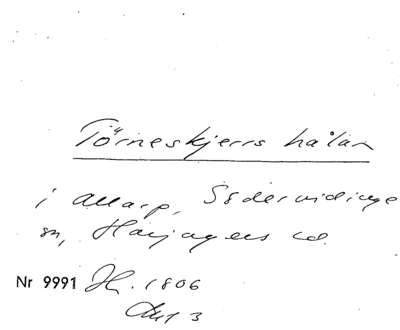 Törneskjerrs hålan
i Allarp, Södervidinge
sn, Harjagers hd.
Nr 9991 H. 1806
Akt 3